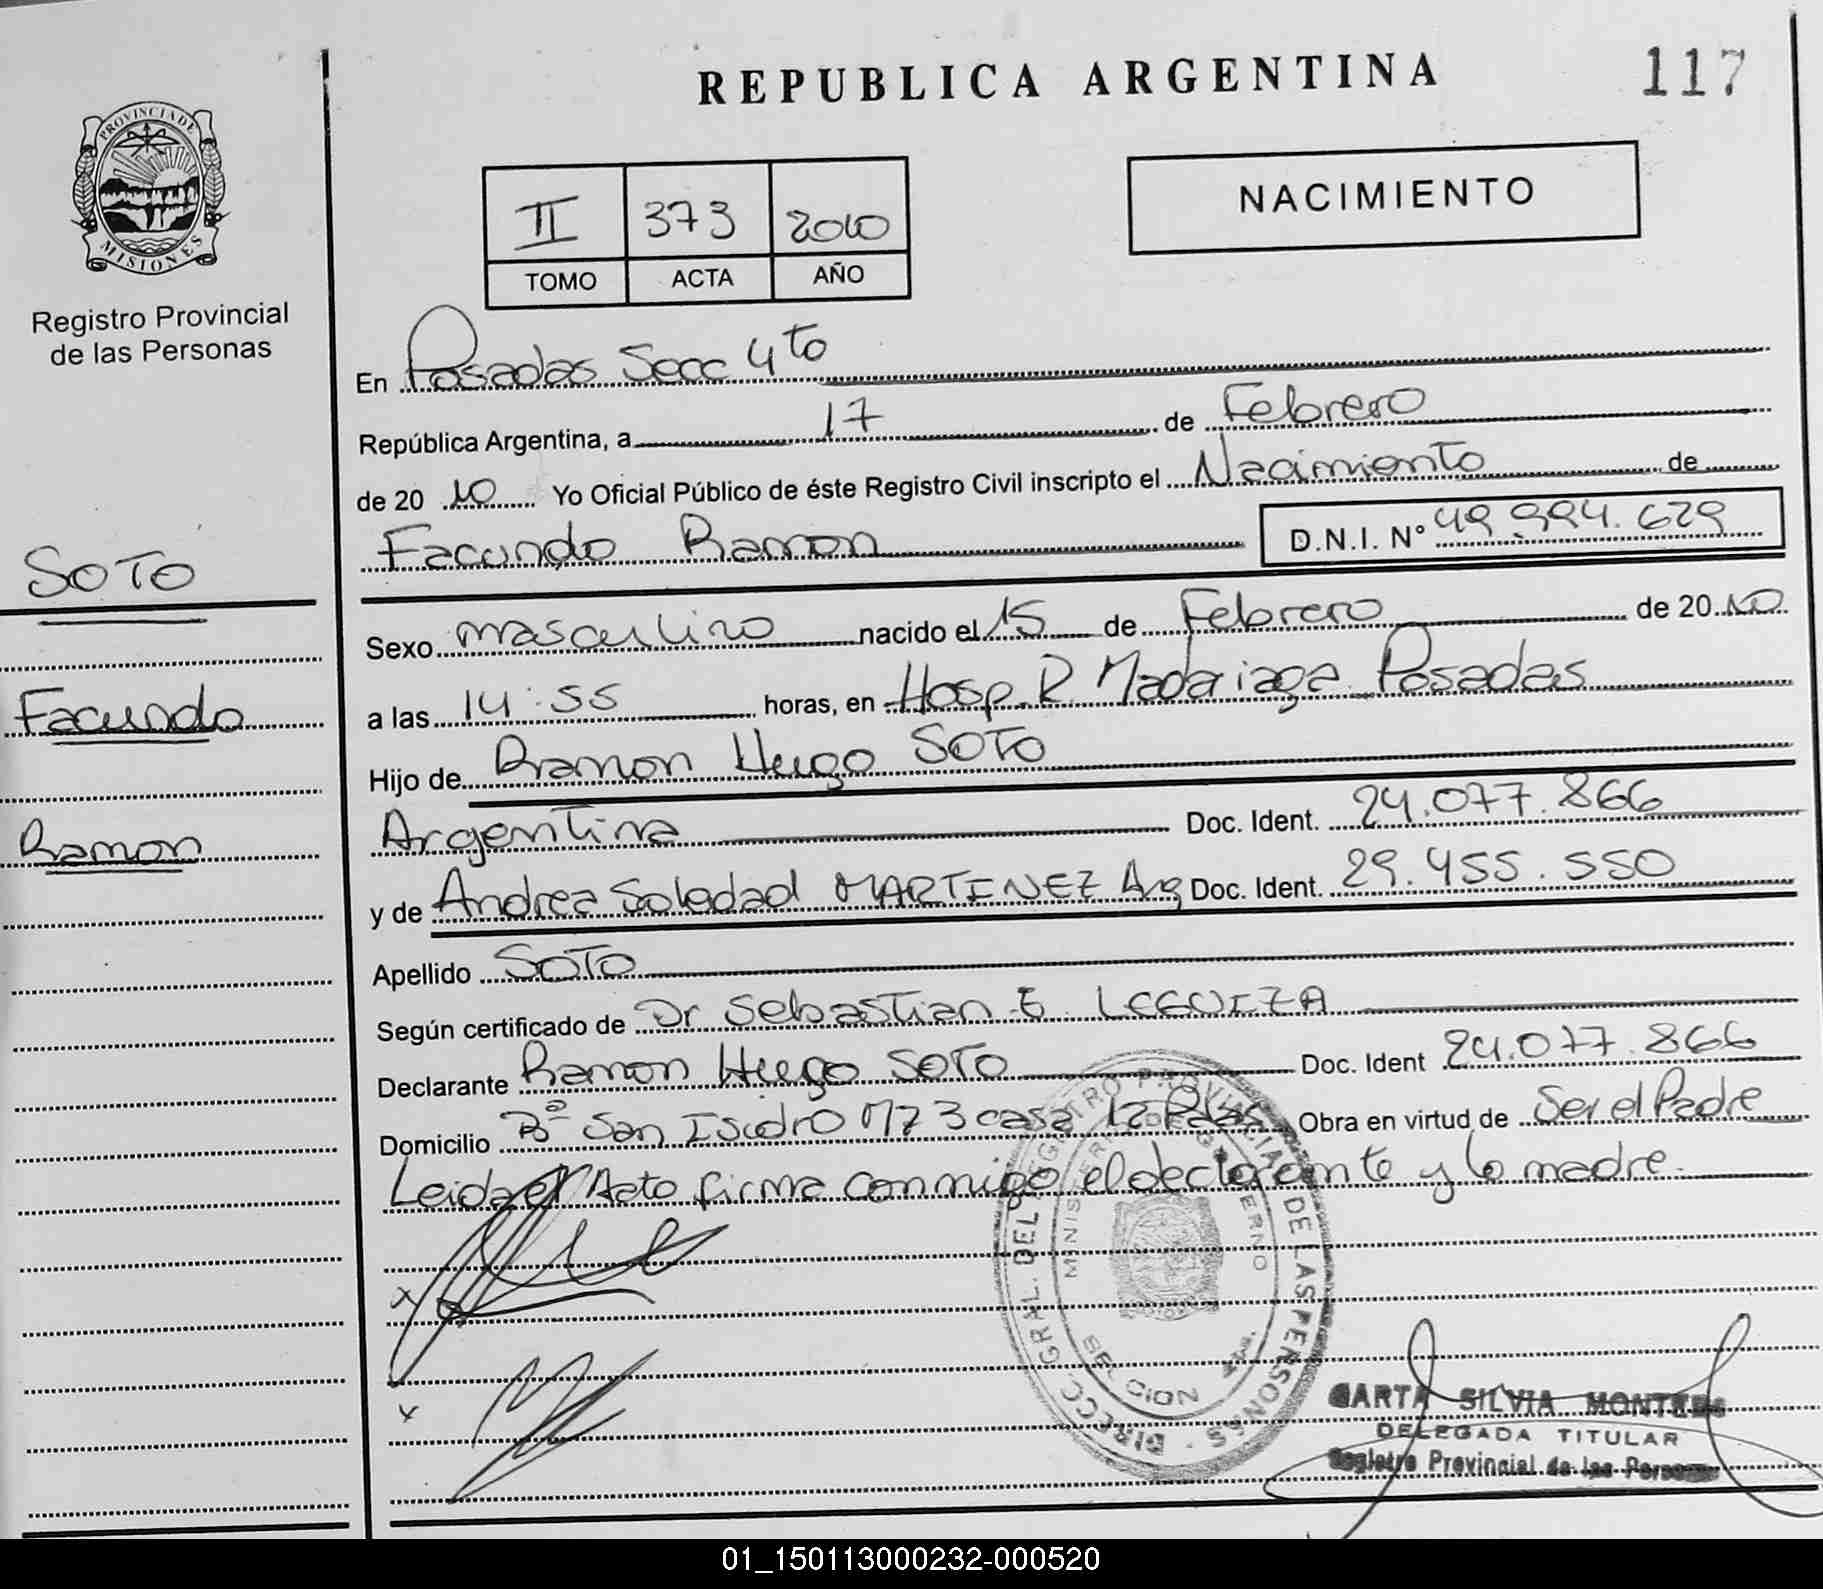 REPUBLICA ARGENTINA
117
PROVINCIA DE
MISIONES
Registro Provincial
de las Personas
II 373 2010
TOMO ACTA AÑO
NACIMIENTO
En Posadas Secc 4to
República Argentina, a 17 de Febrero
de 20 10 Yo Oficial Público de éste Registro Civil inscripto el Nacimiento de
Facundo Ramon D.N.I. N° 49.994.629
SOTO
Facundo
Ramon
Sexo masculino nacido el 15 de Febrero de 20 10
a las 14:55 horas, en Hosp. R Madariaga Posadas
Hijo de Ramon Hugo SOTO
Argentina Doc. Ident. 24.077.866
y de Andrea Soledad MARTINEZ Arg Doc. Ident. 29.455.550
Apellido SOTO
Según certificado de Dr Sebastian E. LEGUIZA
Declarante Ramon Hugo SOTO Doc. Ident 24.077.866
Domicilio B° San Isidro Mz 3 casa 12 Pdas Obra en virtud de Ser el Padre
Leida el Acta firma conmigo el declarante y la madre.
x
x
DIRECC. GRAL. DEL REGISTRO PROVINCIAL DE LAS PERSONAS
SILVIA MONTERO
DELEGADA TITULAR
Registro Provincial de las Personas
01_150113000232-000520